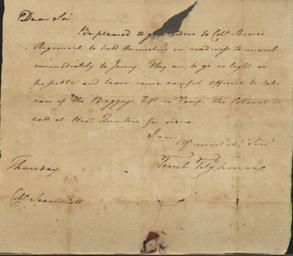 Dear Sir
Be pleased to give orders to Coll.
Regiment to hold themselves in readiness to march
immediately to Jersey. They are to go as light as
possible and leave some careful Officer to take
care of the Baggage left in Camp. The Colonel to
call at Head Quarters for orders
I am
Yr most obt Servt
Tench Tilghman
Thursday
Coll. Scammell